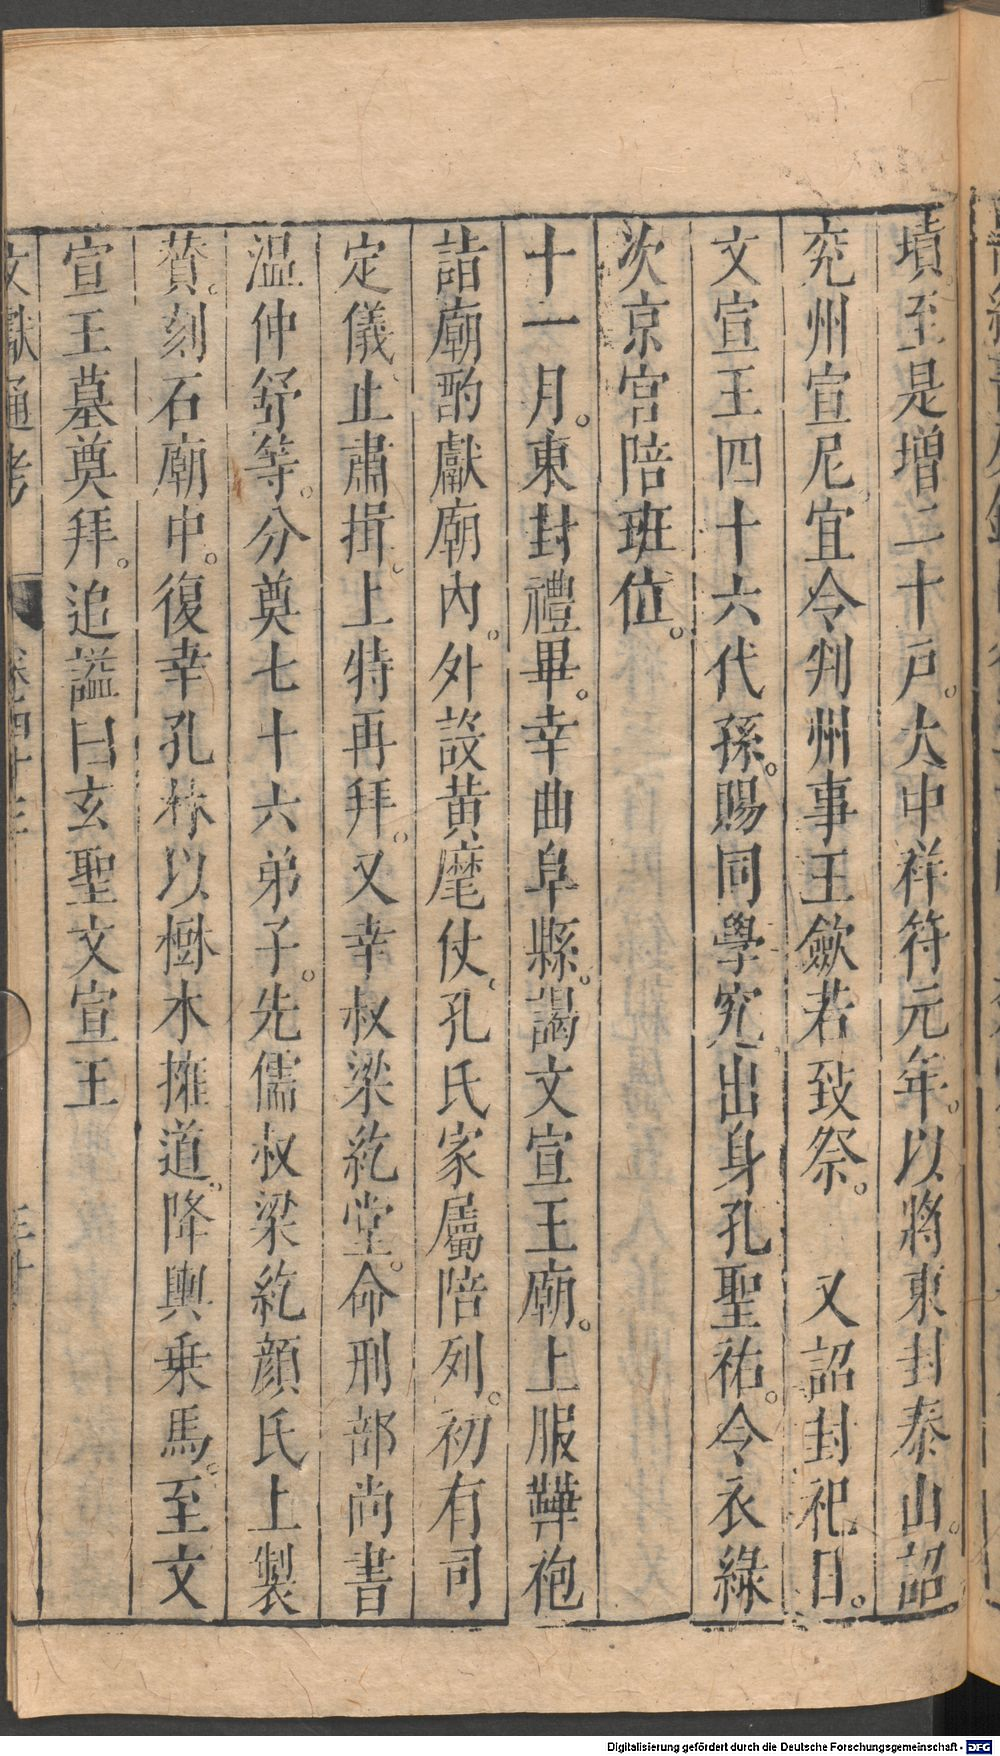 墳至是增二十戸。大中祥符元年。以將東封泰山。詔
兖州宣尼宜令判州事王歛若致祭。　又詔封祀日。
文宣王四十六代孫。賜同學究出身孔聖祐。令衣綠
次京官陪班位。
十一月。東封禮畢。幸曲阜縣。謁文宣王廟。上服鞾袍
詣廟酌獻。廟内。外設黄麾仗。孔氏家屬陪列。初有司
定儀。止肅揖。上特再拜。又幸叔梁紇堂。命刑部尚書
温仲舒等。分奠七十六弟子。先儒叔梁紇顔氏上製
賛。刻石廟中。復幸孔林以樹木擁道。降輿乗馬。至文
宣王墓奠拜。追謚曰玄聖文宣王
文獻通考　卷四十三
Digitalisierung gefördert durch die Deutsche Forschungsgemeinschaft - DFG